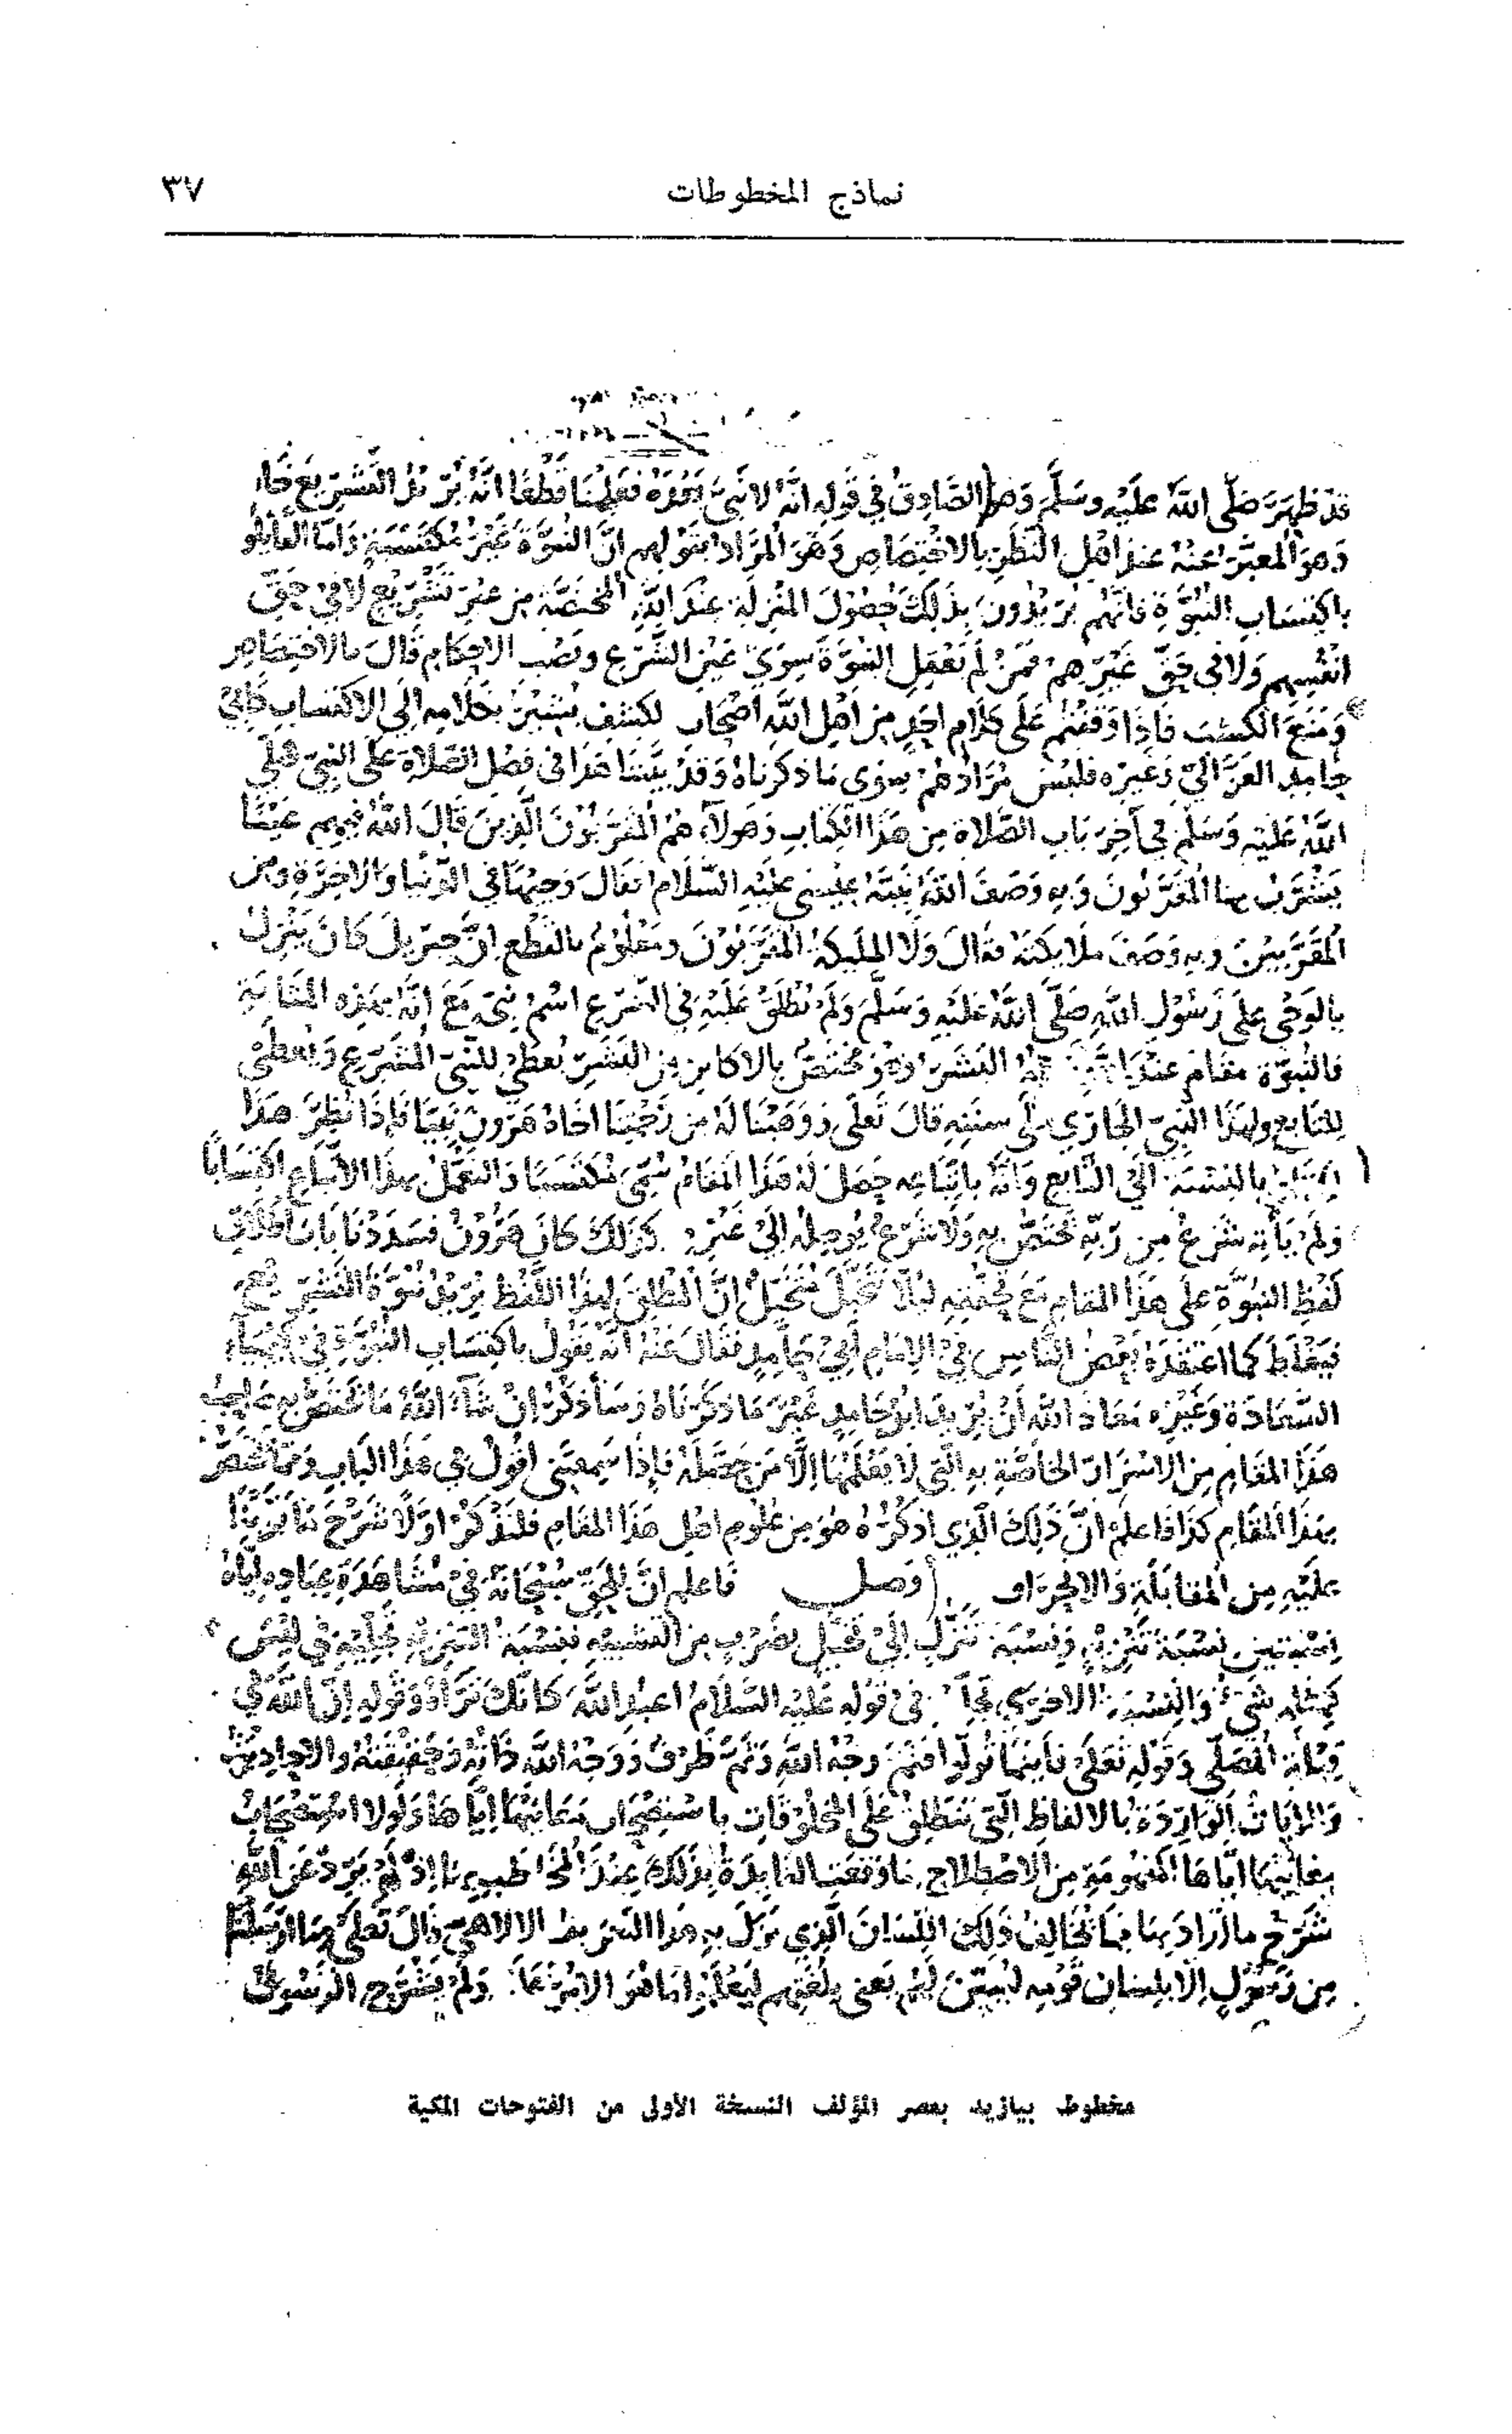 نماذج المخطوطات
٣٧
قد ظهر صلى الله عليه وسلم وهو الصادق في قوله انه لا نبي بعده فعلمنا قطعا انه يريد التشريع خاصة
وهو المعبر عنه عند اهل النظر بالاختصاص وهو المراد بقولهم ان النبوة غير مكتسبة واما القائلون
باكتساب النبوة فانهم يريدون بذلك حصول المنزلة عند الله المختصة من غير تشريع لا في حق
انفسهم ولا في حق غيرهم فمن لم يعقل النبوة سوى عين الشرع ونصب الاحكام قال بالاختصاص
ومنع الكسب فاذا وقفتم على كلام احد من اهل الله اصحاب الكشف يشير بكلامه الى الاكتساب كابي
حامد الغزالي وغيره فليس مرادهم سوى ما ذكرناه وقد بينا هذا في فصل الصلاة على النبي صلى
الله عليه وسلم في آخر باب الصلاة من هذا الكتاب وهولاء هم المقربون الذين قال الله فيهم عينا
يشرب بها المقربون وبه وصف الله نبيه عيسى عليه السلام فقال وجيها في الدنيا والاخرة ومن
المقربين وبه وصف ملايكته فقال ولا المليكة المقربون ومعلوم بالقطع ان جبريل كان ينزل
بالوحي على رسول الله صلى الله عليه وسلم ولم يطلق عليه في الشرع اسم نبي مع انه بهذه المثابة
فالنبوة مقام عند الله البشر وهو مختص بالاكابر من البشر يعطى للنبي المشرع ويعطى
للتابع لهذا النبي الجاري على سنته قال تعلى ووهبنا له من رحمتنا اخاه هرون نبيا فاذا نظر هذا
بالنسبة الى التابع وانه باتباعه حصل له هذا المقام سمي مكتسبا والتعمل بهذا الاتباع اكتسابا
ولم ياته شرع من ربه يختص به ولا شرع يوصله الى غيره كذلك كان هرون فسددنا باب اطلاق
لفظ النبوة على هذا المقام مع تحققه ليلا يتخيل متخيل ان المطلق لهذا اللفظ يريد نبوة التشريع
فيغلط كما اعتقده بعض الناس في الامام ابي حامد فقال عنه انه يقول باكتساب النبوة في كيمياء
السعادة وغيره معاذ الله ان يريد ابو حامد غير ما ذكرناه وساذكر ان شاء الله ما يختص به صاحب
هذا المقام من الاسرار الخاصة به التي لا يعلمها الا من حصله فاذا سمعتني اقول في هذا الباب ومما يختص
بهذا المقام كذا فاعلم ان ذلك الذي اذكره هو من علوم اهل هذا المقام فلنذكر اولا شرح ما بوبنا
عليه من المقابلة والانحراف وصل فاعلم ان للحق سبحانه في مشاهدة عباده اياه
نسبتين نسبة تنزيه ونسبة تنزل الى تخيل بضرب من التشبيه فنسبة التنزيه تجليه في ليس
كمثله شيء والنسبة الاخرى في قوله عليه السلام اعبد الله كانك تراه وقوله ان الله في
قبلة المصلي وقوله تعلى فاينما تولوا فثم وجه الله وثم ظرف ووجه الله ذاته وحقيقته والاحاديث
والايات الواردة بالالفاظ التي تنطلق على المخلوقات باستصحاب معانيها اياها ولولا استصحاب
معانيها اياها المفهومة من الاصطلاح ما وقعت الفايدة بذلك عند المخاطب بها اذ لم يرد عن الله
شرح ما اراد بها مما يخالف ذلك اللسان الذي نزل به هذا التعريف الالاهي قال تعلى وما ارسلنا
من رسول الا بلسان قومه ليبين لهم يعني بلغتهم ليعلموا ما هو الامر عليه ولم يشرح الرسول
مخطوط بيازيد بعصر المؤلف النسخة الأولى من الفتوحات المكية